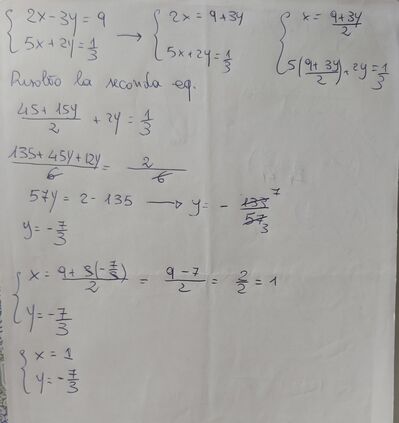 { 2x - 3y = 9    { 2x = 9+3y    { x = 9+3y/2
{ 5x + 2y = 1/3  →  { 5x + 2y = 1/3    { 5(9+3y/2) + 2y = 1/3
Risolvo la seconda eq.
45 + 15y/2 + 2y = 1/3
135 + 45y + 12y/6 = 2/6
57y = 2 - 135 → y = - 133/57 7/3
y = - 7/3
{ x = 9 + 3(-7/3)/2 = 9 - 7/2 = 2/2 = 1
{ y = - 7/3
{ x = 1
{ y = - 7/3